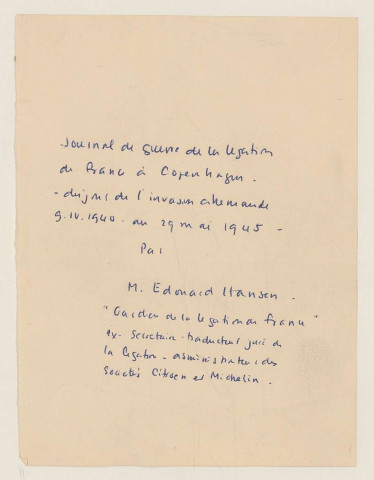 Journal de guerre de la légation
de France à Copenhague.
- du jour de l'invasion allemande
9.IV.1940. au 29 mai 1945 -
Par
M. Edouard Hansen.
"Gardien de la légation de France"
ex-Secrétaire-traducteur juré de
la légation - administrateur des
Sociétés Citroën et Michelin.